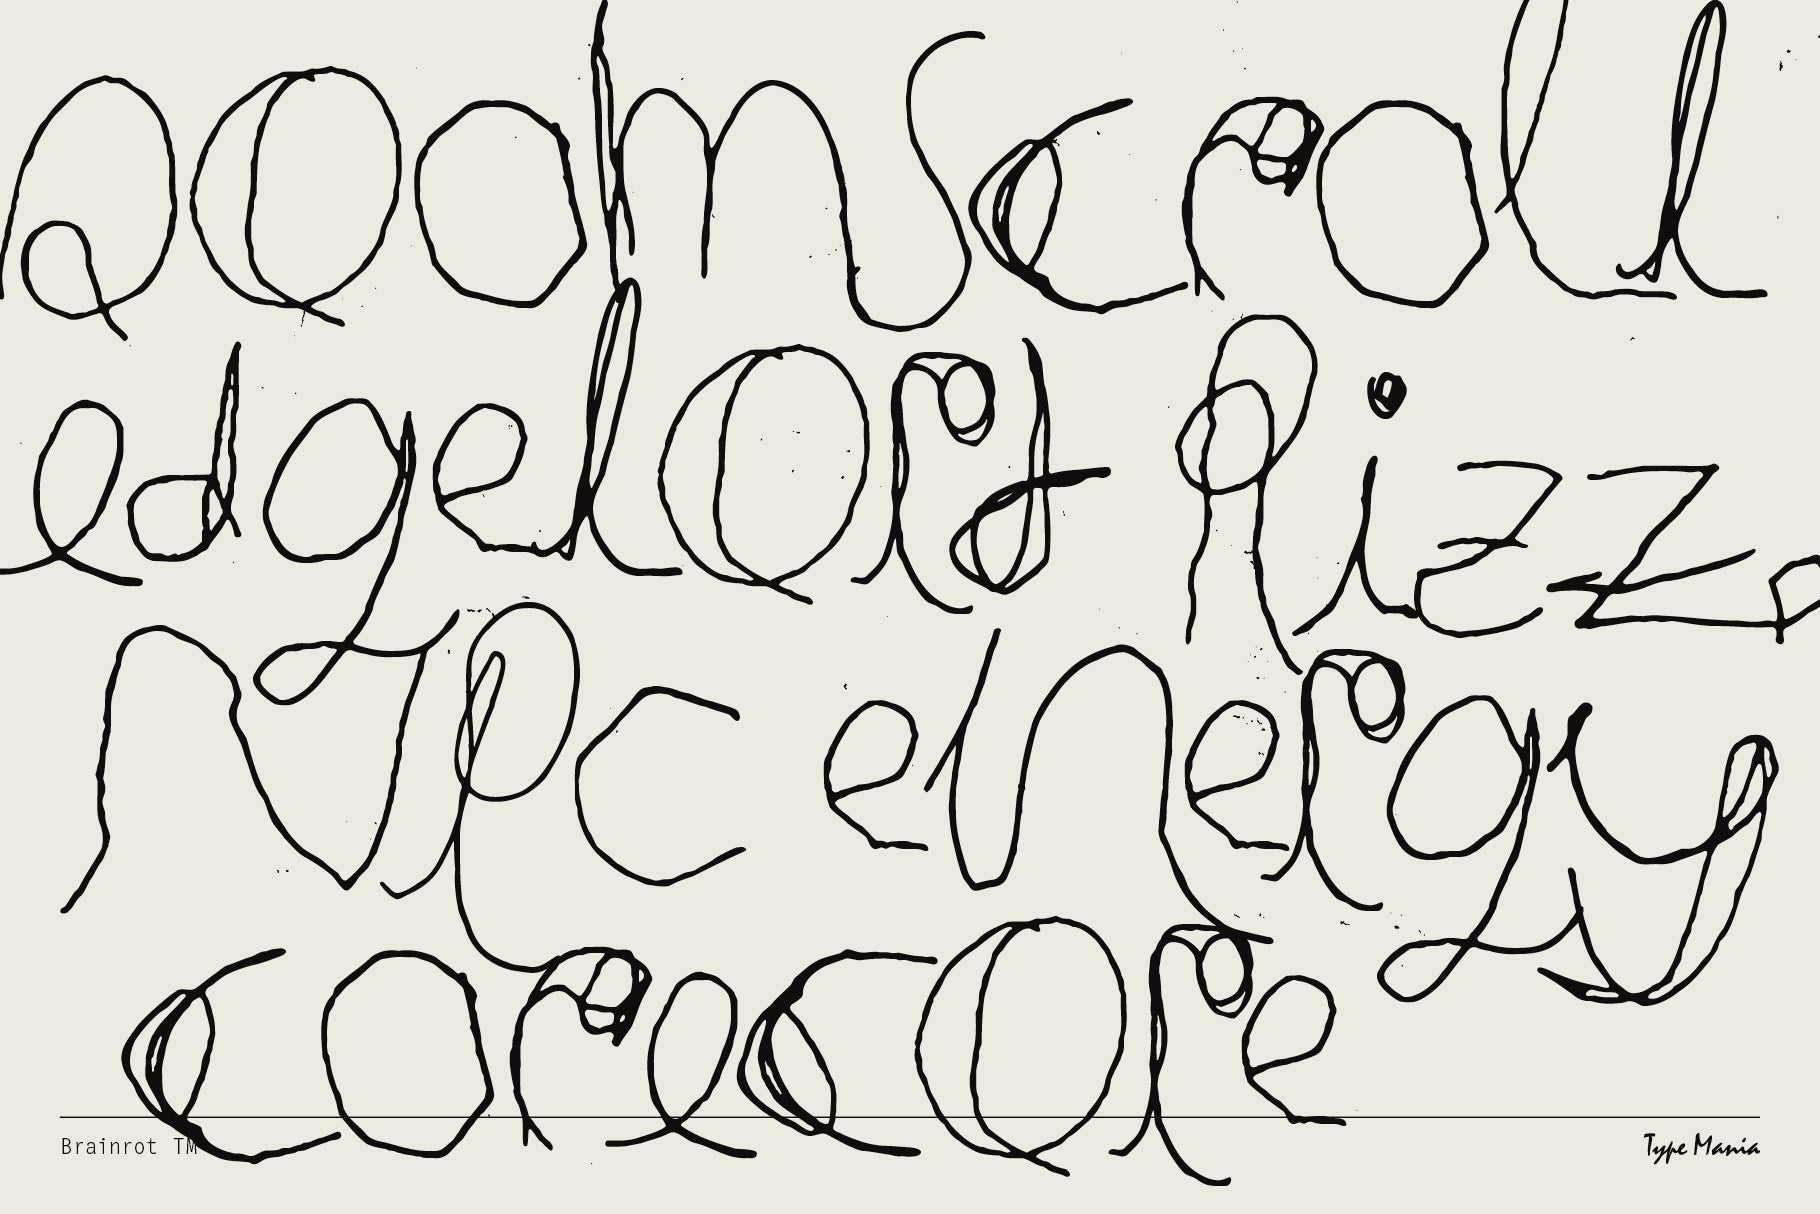 Doomscroll
edgelord Rizz
Npc energy
corecore
Brainrot TM
Type Mania